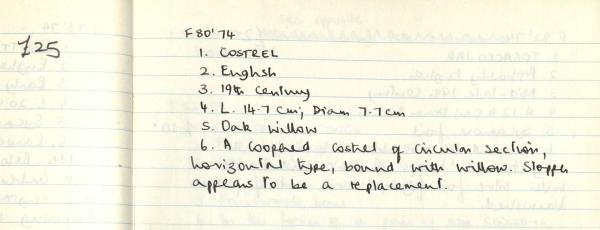 £25
F80'74
1. COSTREL
2. English
3. 19th Century
4. L. 14.7 cm; Diam 7.7cm
5. Oak willow
6. A coopered costrel of circular section,
horizontal type, bound with willow. Stopper
appears to be a replacement.